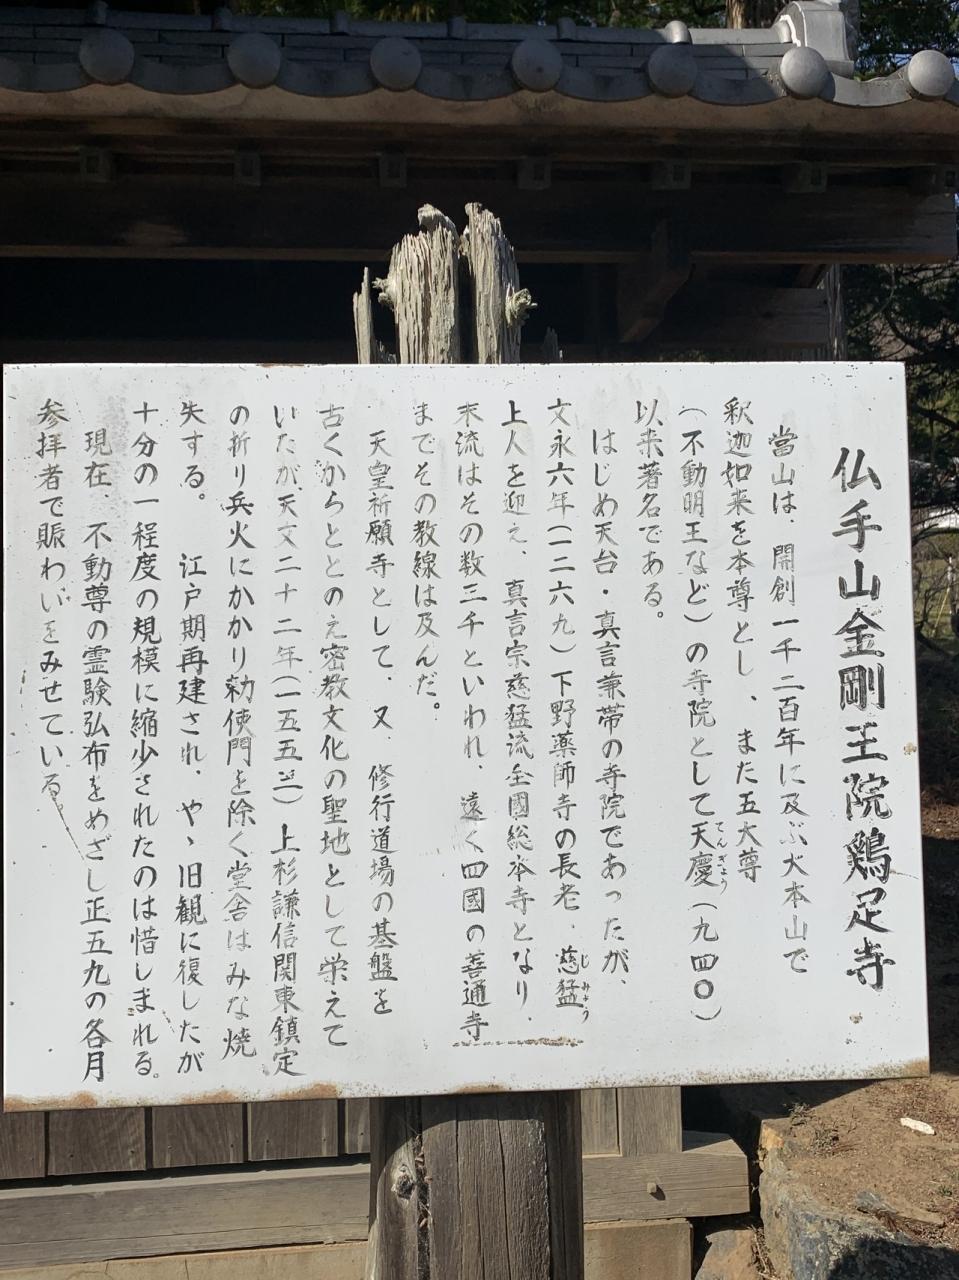 仏手山金剛王院鶏足寺
當山は、開創一千二百年に及ぶ大本山で
釈迦如来を本尊とし、また五大尊
(不動明王など)の寺院として天慶(九四〇)
てんぎょう
以来著名である。
はじめ天台・真言兼帯の寺院であったが、
文永六年(一二六九)下野薬師寺の長老、慈猛
じみょう
上人を迎え、真言宗慈猛流全國総本寺となり、
末流はその数三千といわれ、遠く四國の善通寺
までその教線は及んだ。
天皇祈願寺として、又、修行道場の基盤を
古くからととのえ密教文化の聖地として栄えて
いたが、天文二十二年(一五五三)上杉謙信関東鎮定
の折り兵火にかかり勅使門を除く堂舎はみな焼
失する。 江戸期再建され、やゝ旧観に復したが
十分の一程度の規模に縮少されたのは惜しまれる。
現在、不動尊の霊験弘布をめざし正五九の各月
参拝者で賑わいをみせている